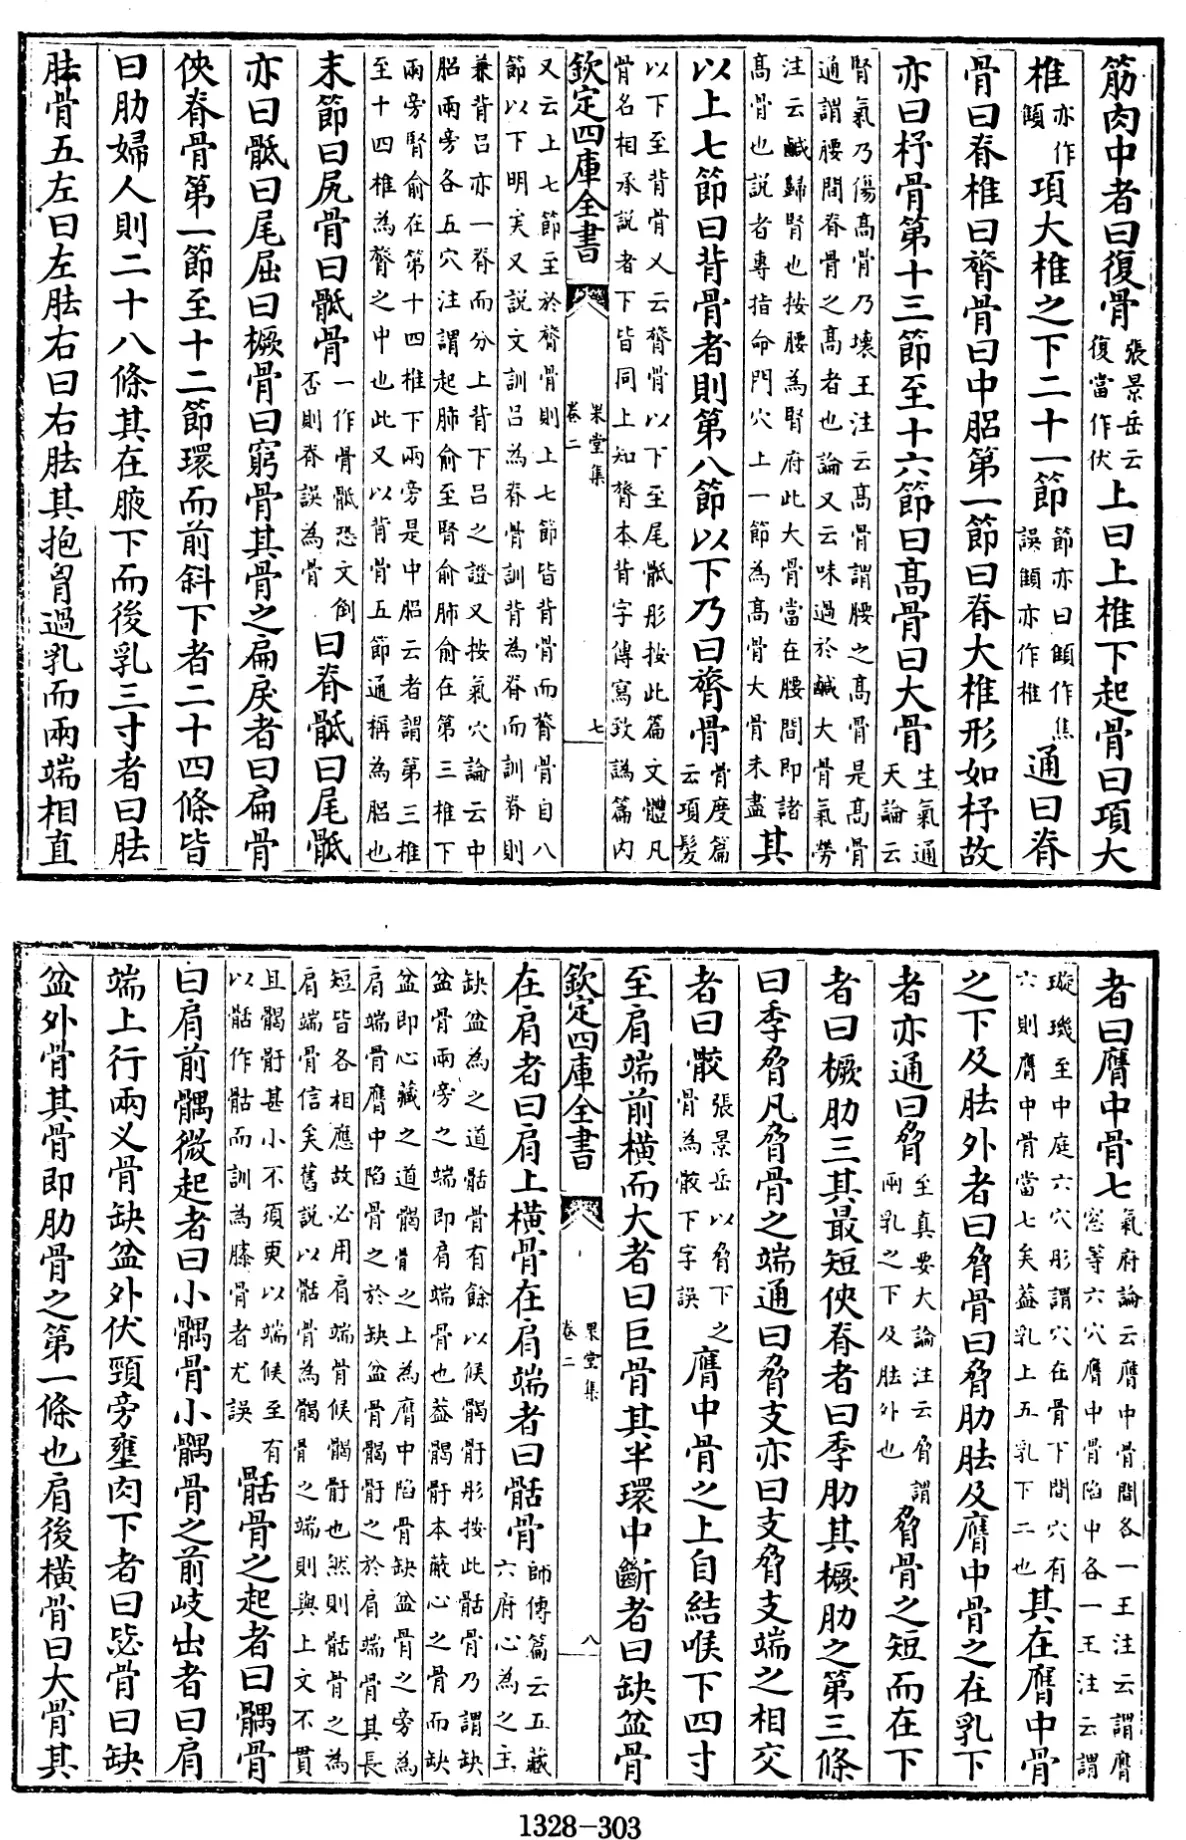 筋肉中者曰復骨張景岳云復當作伏上曰上椎下起骨曰項大
椎亦作顀項大椎之下二十一節節亦曰顀作焦誤顀亦作椎通曰脊
骨曰脊椎曰膂骨曰中䏰第一節曰脊大椎形如杼故
亦曰杼骨第十三節至十六節曰髙骨曰大骨生氣通天論云
腎氣乃傷髙骨乃壊王注云髙骨謂腰之髙骨是髙骨
通謂腰間脊骨之髙者也論又云味過於鹹大骨氣勞
注云鹹歸腎也按腰為腎府此大骨當在腰間即諸
髙骨也説者專指命門穴上一節為髙骨大骨未盡其
以上七節曰背骨者則第八節以下乃曰膂骨骨度篇云項髪
以下至背骨又云膂骨以下至尾骶彤按此篇文體凡
骨名相承説者下皆同上知膂本背字傳寫致譌篇内
欽定四庫全書 果堂集 卷二 七
又云上七節至於膂骨則上七節皆背骨而膂骨自八
節以下明矣又説文訓呂為脊骨訓背為脊而訓脊則
兼背呂亦一脊而分上背下呂之證又按氣穴論云中
䏰兩旁各五穴注謂起肺俞至腎俞肺俞在第三椎下
兩旁腎俞在第十四椎下兩旁是中䏰云者謂第三椎
至十四椎為膂之中也此又以背骨五節通稱為䏰也
末節曰尻骨曰骶骨一作骨骶恐文倒否則脊誤為骨曰脊骶曰尾骶
亦曰骶曰尾屈曰橛骨曰窮骨其骨之扁戾者曰扁骨
俠脊骨第一節至十二節環而前斜下者二十四條皆
曰肋婦人則二十八條其在腋下而後乳三寸者曰胠
胠骨五左曰左胠右曰右胠其抱胷過乳而兩端相直
者曰膺中骨七氣府論云膺中骨間各一王注云謂膺窓等六穴膺中骨陷中各一王注云謂
璇璣至中庭六穴彤謂穴在骨下間穴有
六則膺中骨當七矣葢乳上五乳下二也其在膺中骨
之下及胠外者曰脅骨曰脅肋胠及膺中骨之在乳下
者亦通曰脅至真要大論注云脅謂兩乳之下及胠外也脅骨之短而在下
者曰橛肋三其最短俠脊者曰季肋其橛肋之第三條
曰季脅凡脅骨之端通曰脅支亦曰支脅支端之相交
者曰骹張景岳以脅下之骨為骹下字誤膺中骨之上自結喉下四寸
至肩端前横而大者曰巨骨其半環中斷者曰缺盆骨
欽定四庫全書 果堂集 卷二 八
在肩者曰肩上横骨在肩端者曰䯏骨師傳篇云五藏六府心為之主
缺盆為之道䯏骨有餘以候髃骭彤按此䯏骨乃謂缺
盆骨兩旁之端即肩端骨也葢髃骭本蔽心之骨而缺
盆即心藏之道髃骨之上為膺中陷骨缺盆骨之旁為
肩端骨膺中陷骨之於缺盆骨髃骭之於肩端骨其長
短皆各相應故必用肩端骨候髃骭也然則䯏骨之為
肩端骨信矣舊説以䯏骨為髃骨之端則與上文不貫
且髃骭甚小不須更以端候至有
以䯏作骷而訓為膝骨者尤誤䯏骨之起者曰髃骨
曰肩前髃微起者曰小髃骨小髃骨之前岐出者曰肩
端上行兩乂骨缺盆外伏頸旁壅肉下者曰毖骨曰缺
盆外骨其骨即肋骨之第一條也肩後横骨曰大骨其
1328-303